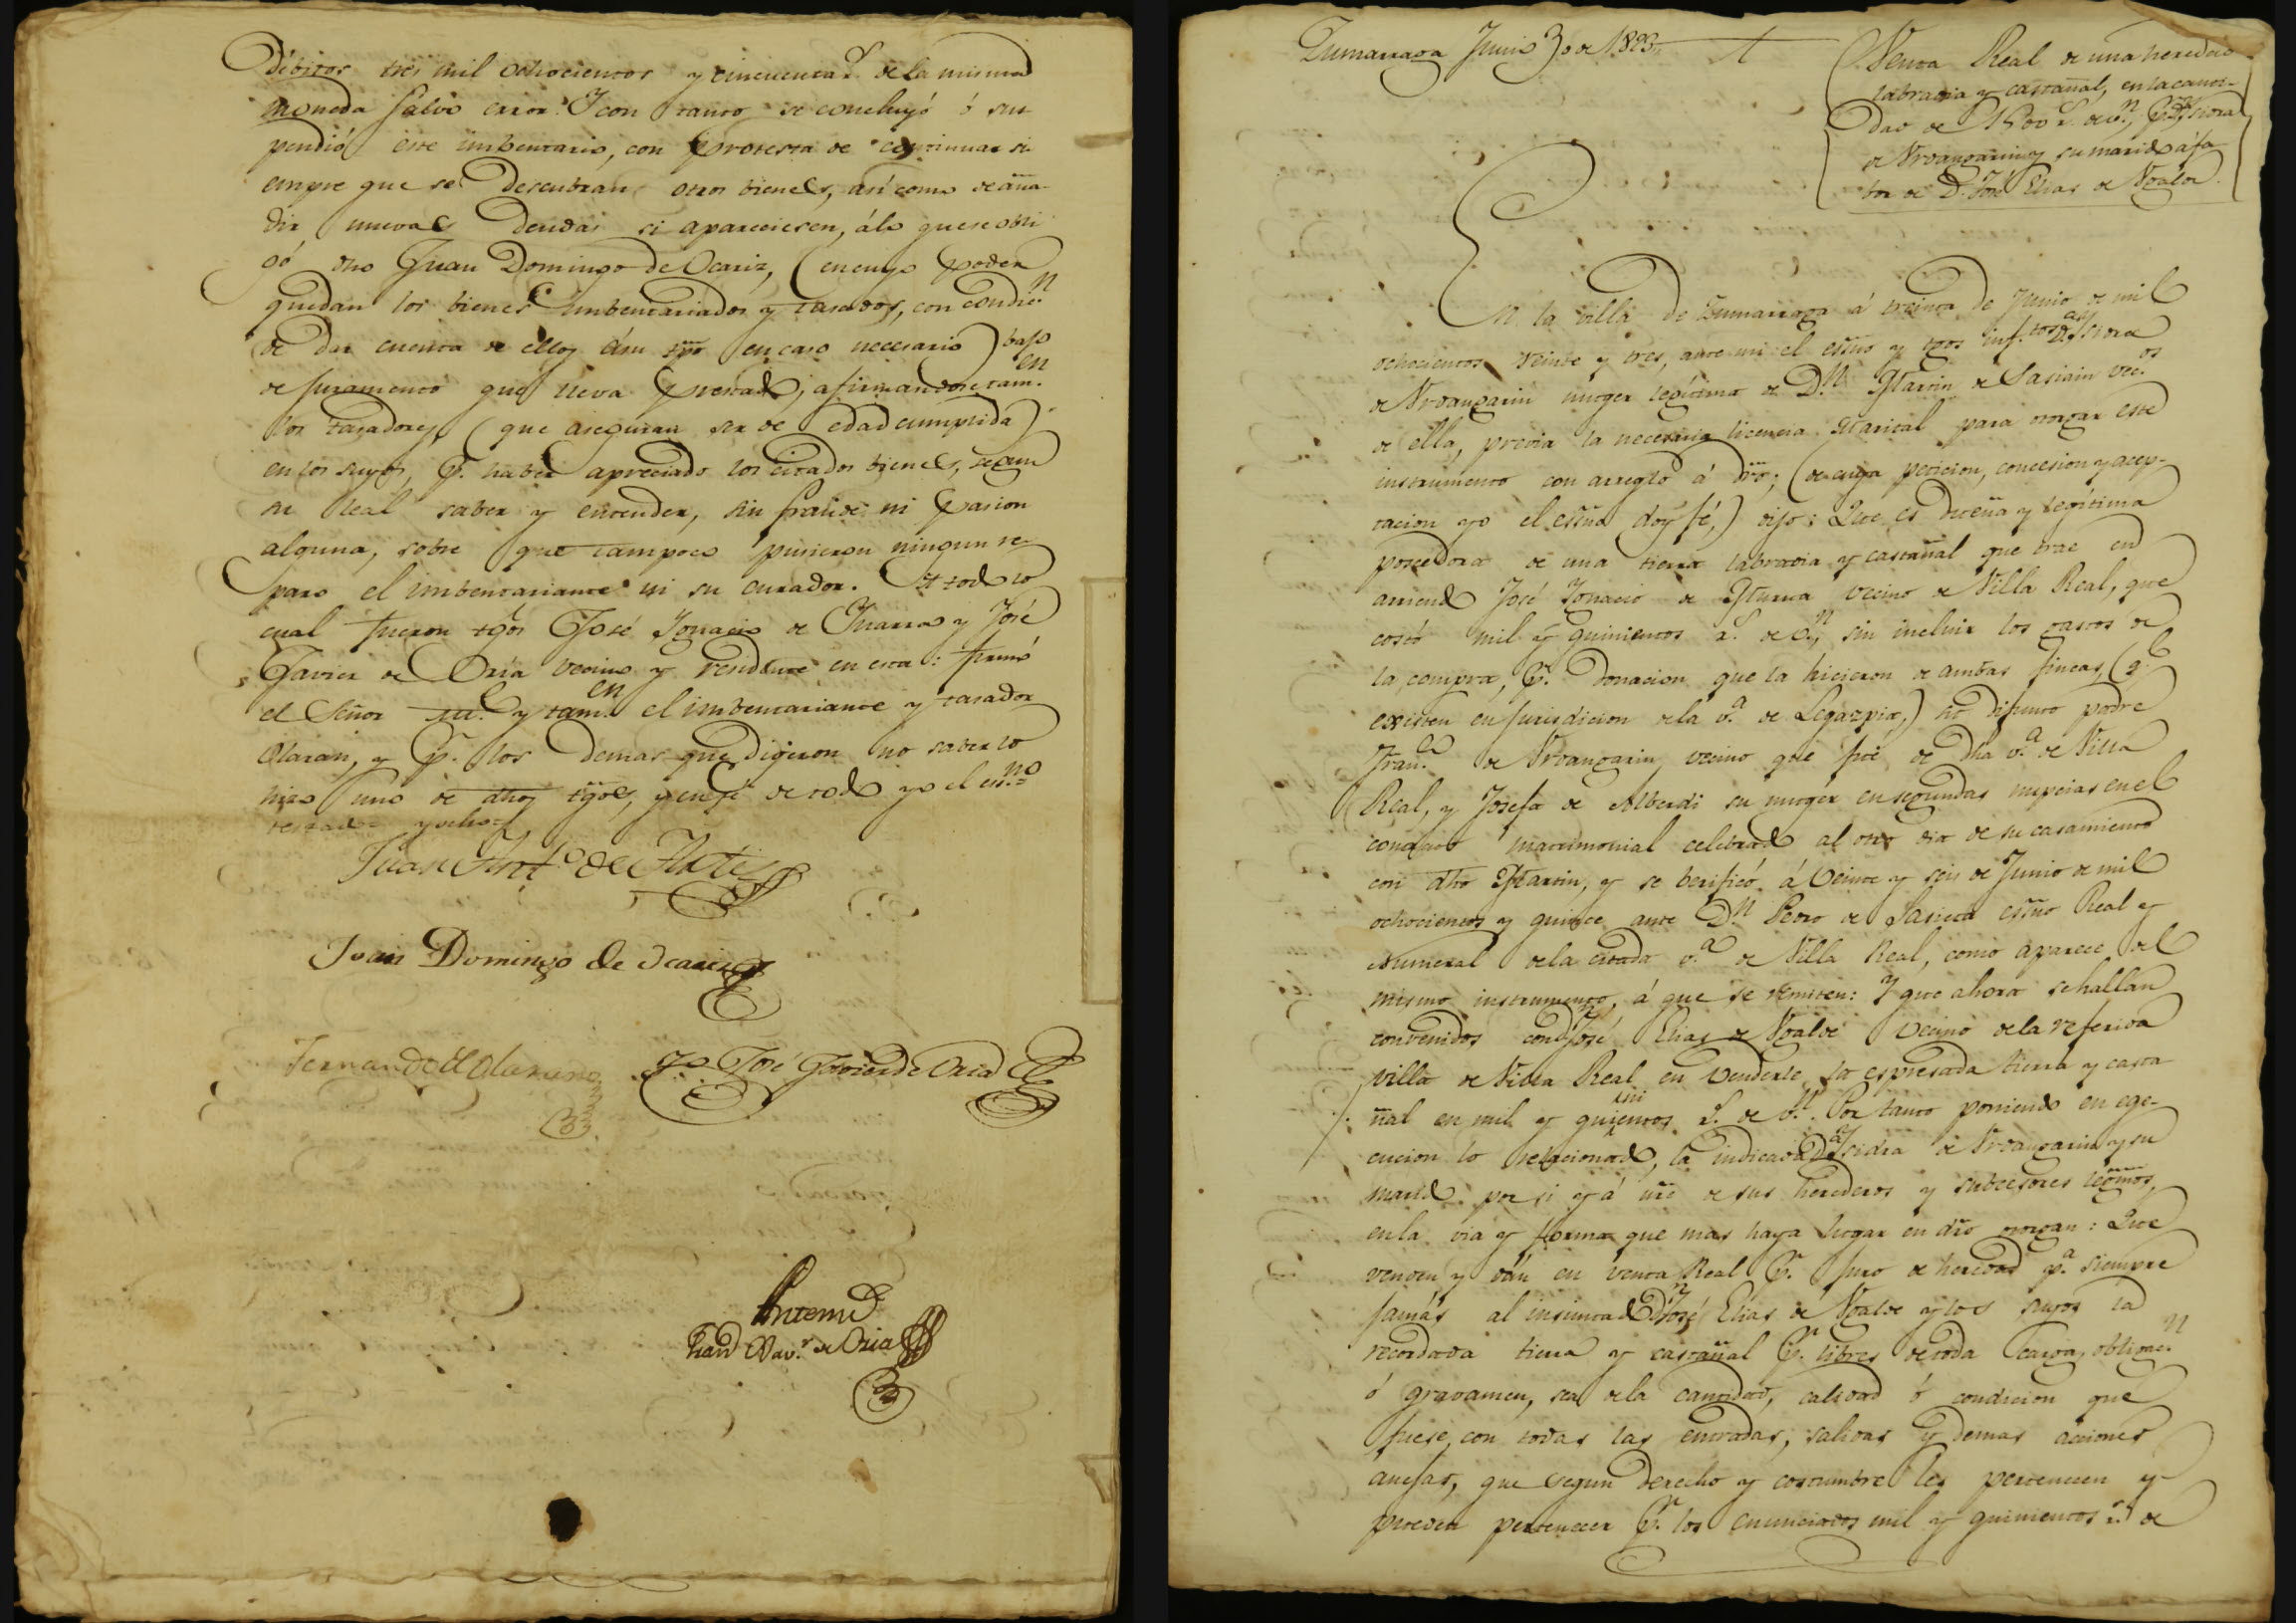 débitos tres mil ochocientos y cincuenta r.s de la misma
moneda salvo error. Y con tanto se concluyó ó sus
pendió este imbentario, con protesta de continuar si
empre que se descubran otros bienes, así como de aña-
dir nuevas deudas si apareciesen, á lo que se obli
gó dho Juan Domingo de Ocariz, (en cuyo poder
quedan los bienes imbentariados y tasados, con condic.n
de dar cuenta de ellos á su tpo en caso necesario) bajo
de juramento que lleva prestado; afirmandose tam.en
los tasadores, (que aseguran ser de edad cumplida)
en los suyos, p.r haber apreciado los citados bienes, segun
su leal saber y entender, sin fraude ni pasion
alguna, sobre que tampoco pusieron ningun re-
paro el imbentariante ni su curador. A todo lo
cual fueron tgos José Ignacio de Ynarra y José
Javier de Oria vecino y rendente en esta: firmó
el Señor y tam.en el imbentariante y tasador
Olaran, y p.r los demas que digeron no saberlo
hizo uno de dhos tgos, y en fé de todo yo el ess.no
testado = y ocho =
Juan Ant.o de
Juan Domingo de Ocariz
Fernando de Olaran
Jose Javier de Oria
Antemi
Fran.co Xav.r de Oria
Zumarraga Junio 30 de 1823.
Venta Real de una heredad
labradia y castañal, en la canti-
dad de 1500 r.s de v.n, p.r D.a Isidra
de Urdangarin y su marido á fa-
bor de D.n José Elias de Ugalde.
En la villa de Zumarraga á treinta de Junio de mil
ochocientos veinte y tres, ante mi el essno y tgos inf.tos D.a Isidra
de Urdangarin muger legítima de D.n Martin de Sasiain vec.os
de ella, previa la necesaria licencia Marital para otorgar este
instrumento con arreglo á dro; (de cuya peticion, concesion y acep-
tacion yo el essno doy fé,) dijo: Que es dueña y legítima
poseedora de una tierra labradia y castañal que trae en
arriendo José Ignacio de Yturria vecino de Villa Real, que
costó mil y quinientos r.s de v.n, sin incluir los gastos de
la compra, p.r donacion que la hicieron de ambas fincas, (q.e
existen en jurisdicion de la v.a de Legazpia,) su difunto padre
Fran.co de Urdangarin, vecino que fué de dha v.a de Villa
Real, y Josefa de Alberdi su muger en segundas nupcias en el
contrato matrimonial celebrado al otro dia de su casamiento
con dho Martin, y se berificó á veinte y seis de Junio de mil
ochocientos y quince ante D.n Pedro de Sasieta essno Real y
Numeral de la citada v.a de Villa Real, como aparece del
mismo instrumento, á que se remiten: Y que ahora se hallan
convenidos con D.n José Elias de Ugalde vecino de la referida
villa de Villa Real en venderle la espresada tierra y casta
ñal en mil y quinientos r.s de v.n. Por tanto poniendo en ege-
cucion lo relacionado, la indicada D.a Isidra de Urdangarin y su
marido por si y á nre de sus herederos y subcesores legmos,
en la via y forma que mas haya lugar en dro otorgan: Que
venden y dán en venta Real p.r juro de heredad p.a siempre
jamás al insinuado D.n José Elias de Ugalde y los suyos la
recordada tierra y castañal p.r libres de toda carga, obligac.n
ó gravamen, sea de la cantidad, calidad ó condicion que
fuese, con todas las entradas, salidas y demas acciones
anejas, que segun derecho y costumbre les pertenecen y
pueden pertenecer p.r los enunciados mil y quinientos r.s de